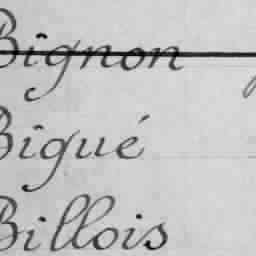 Bignon
Bigué
Billois